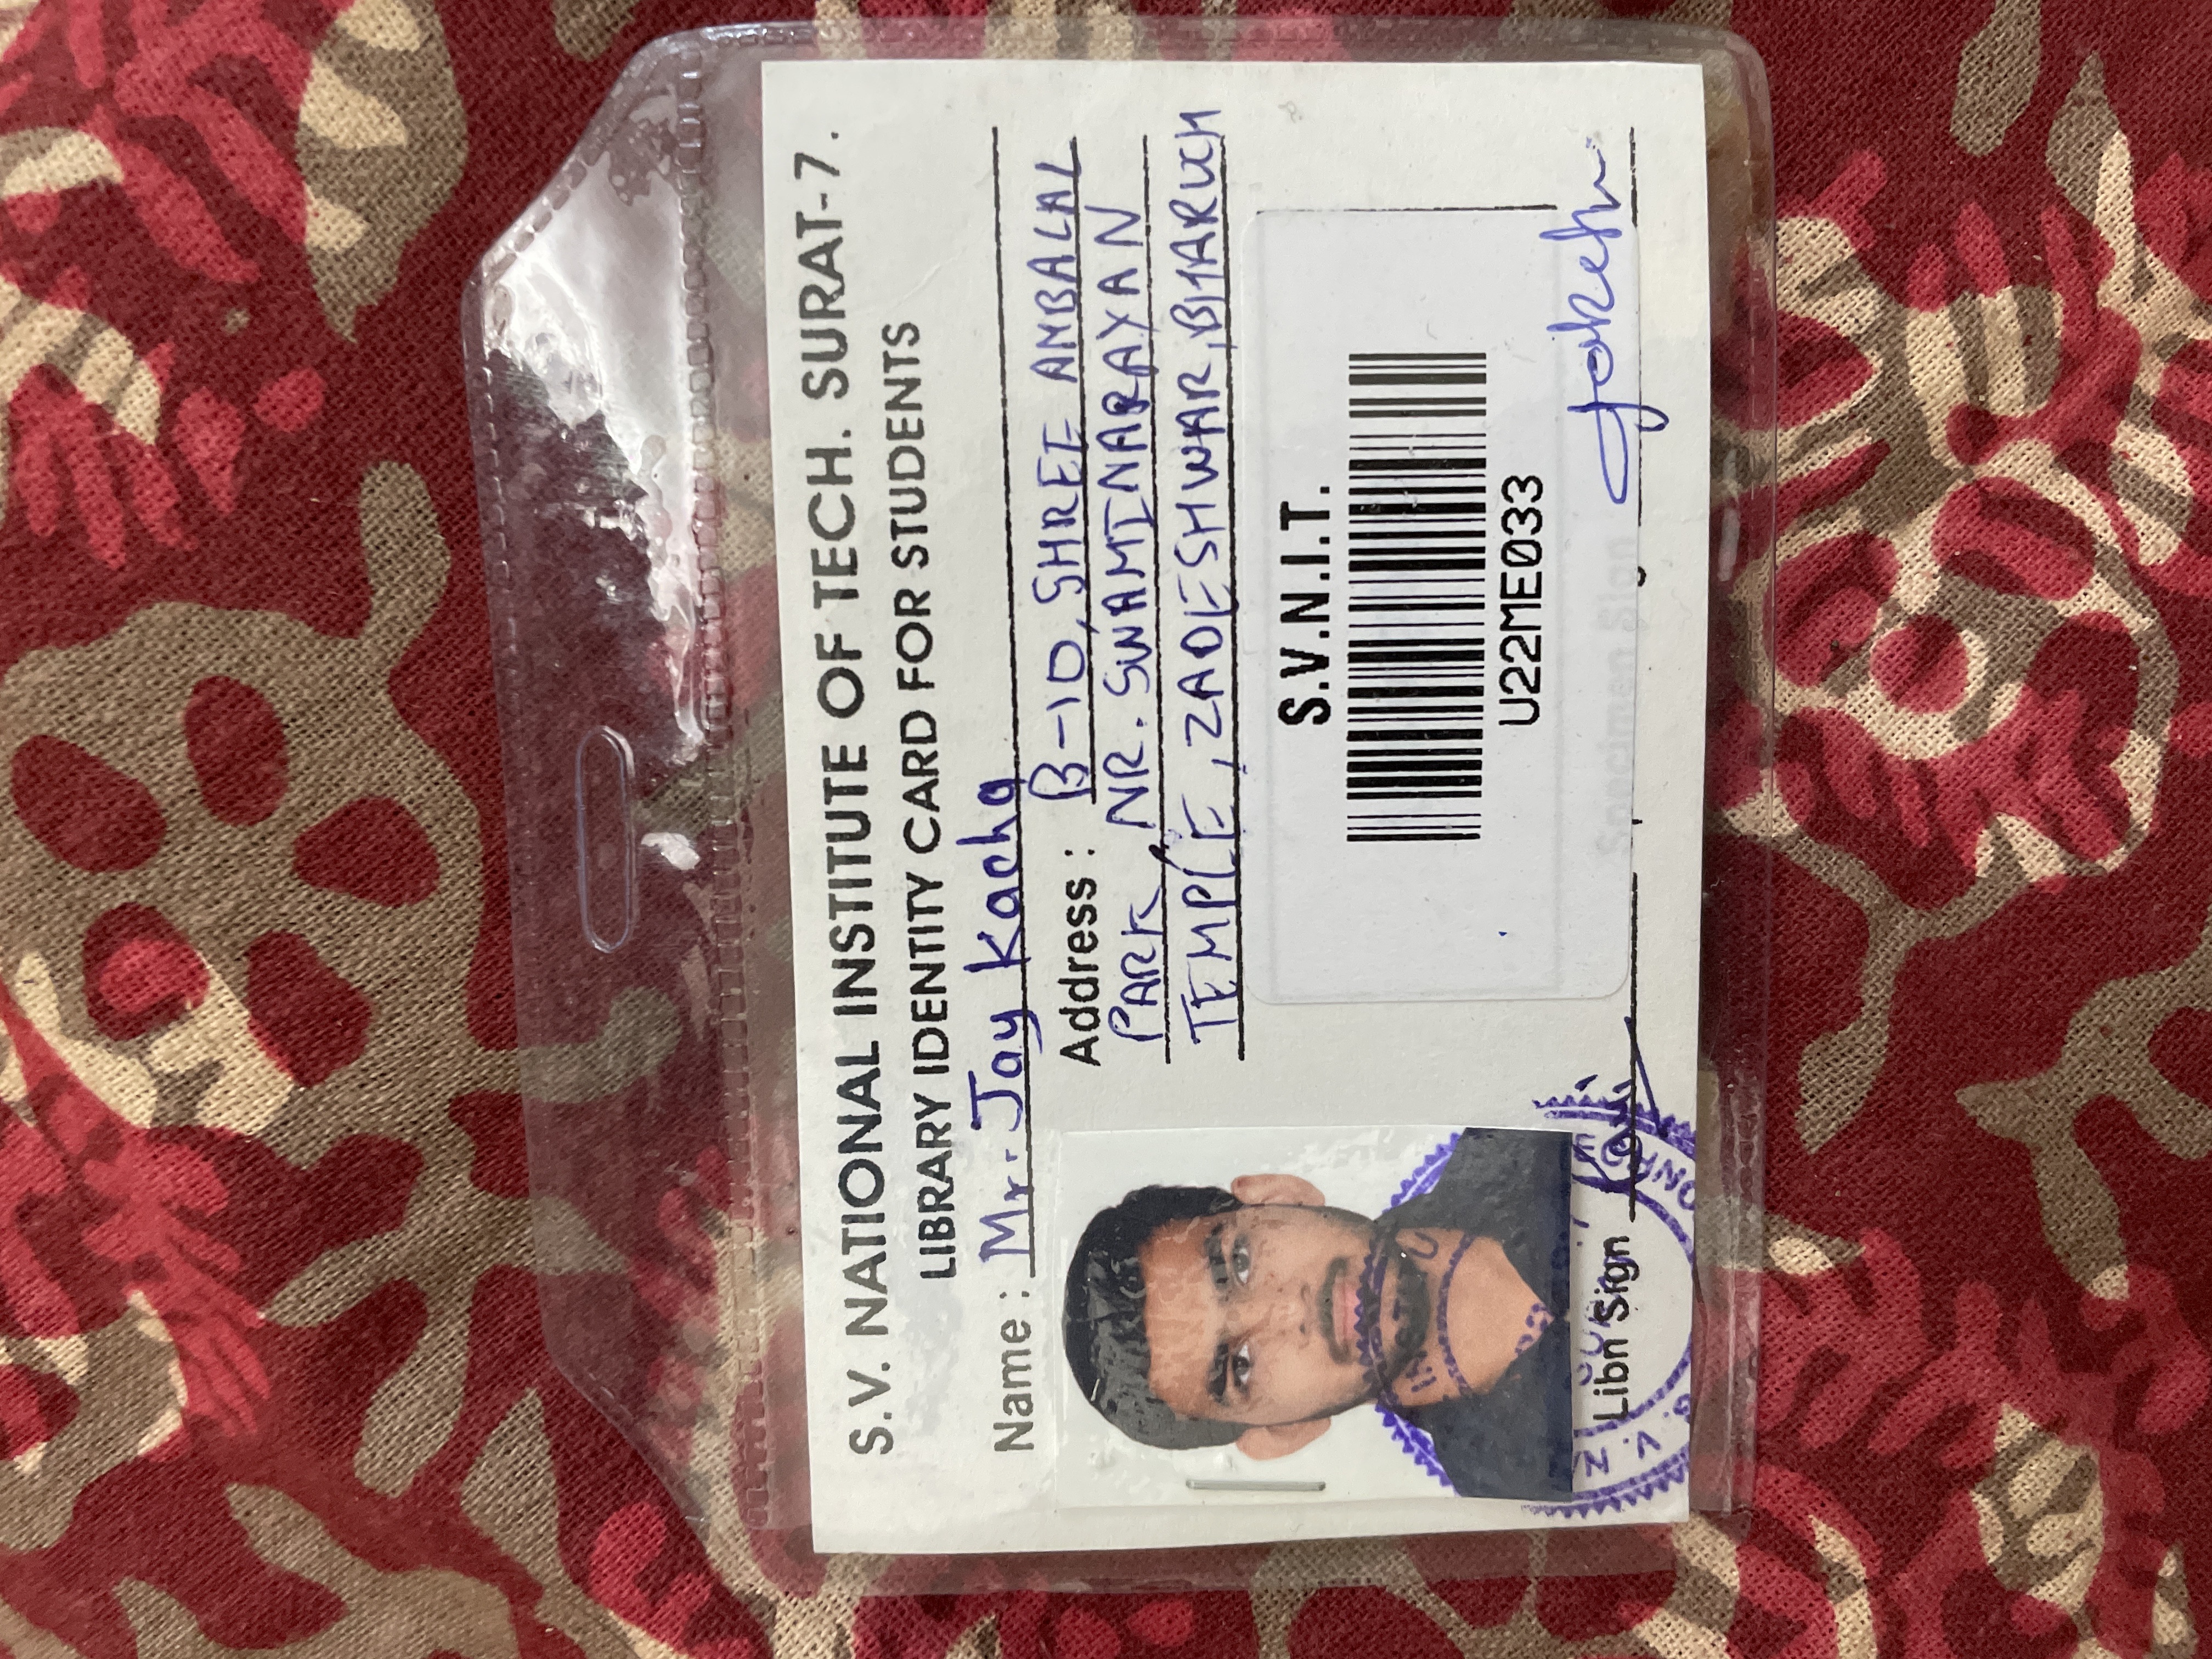 S.V. NATIONAL INSTITUTE OF TECH. SURAT-7.
LIBRARY IDENTITY CARD FOR STUDENTS
Name : Mr. Jay Kacha
Address : B-10, SHREE AMBALAL
PARK, NR. SWAMINARAYAN
TEMPLE, ZADESHWAR, BHARUCH
S.V.N.I.T.
U22ME033
INSTITU
S. V. NA
Libn Sign
Specimen Sign